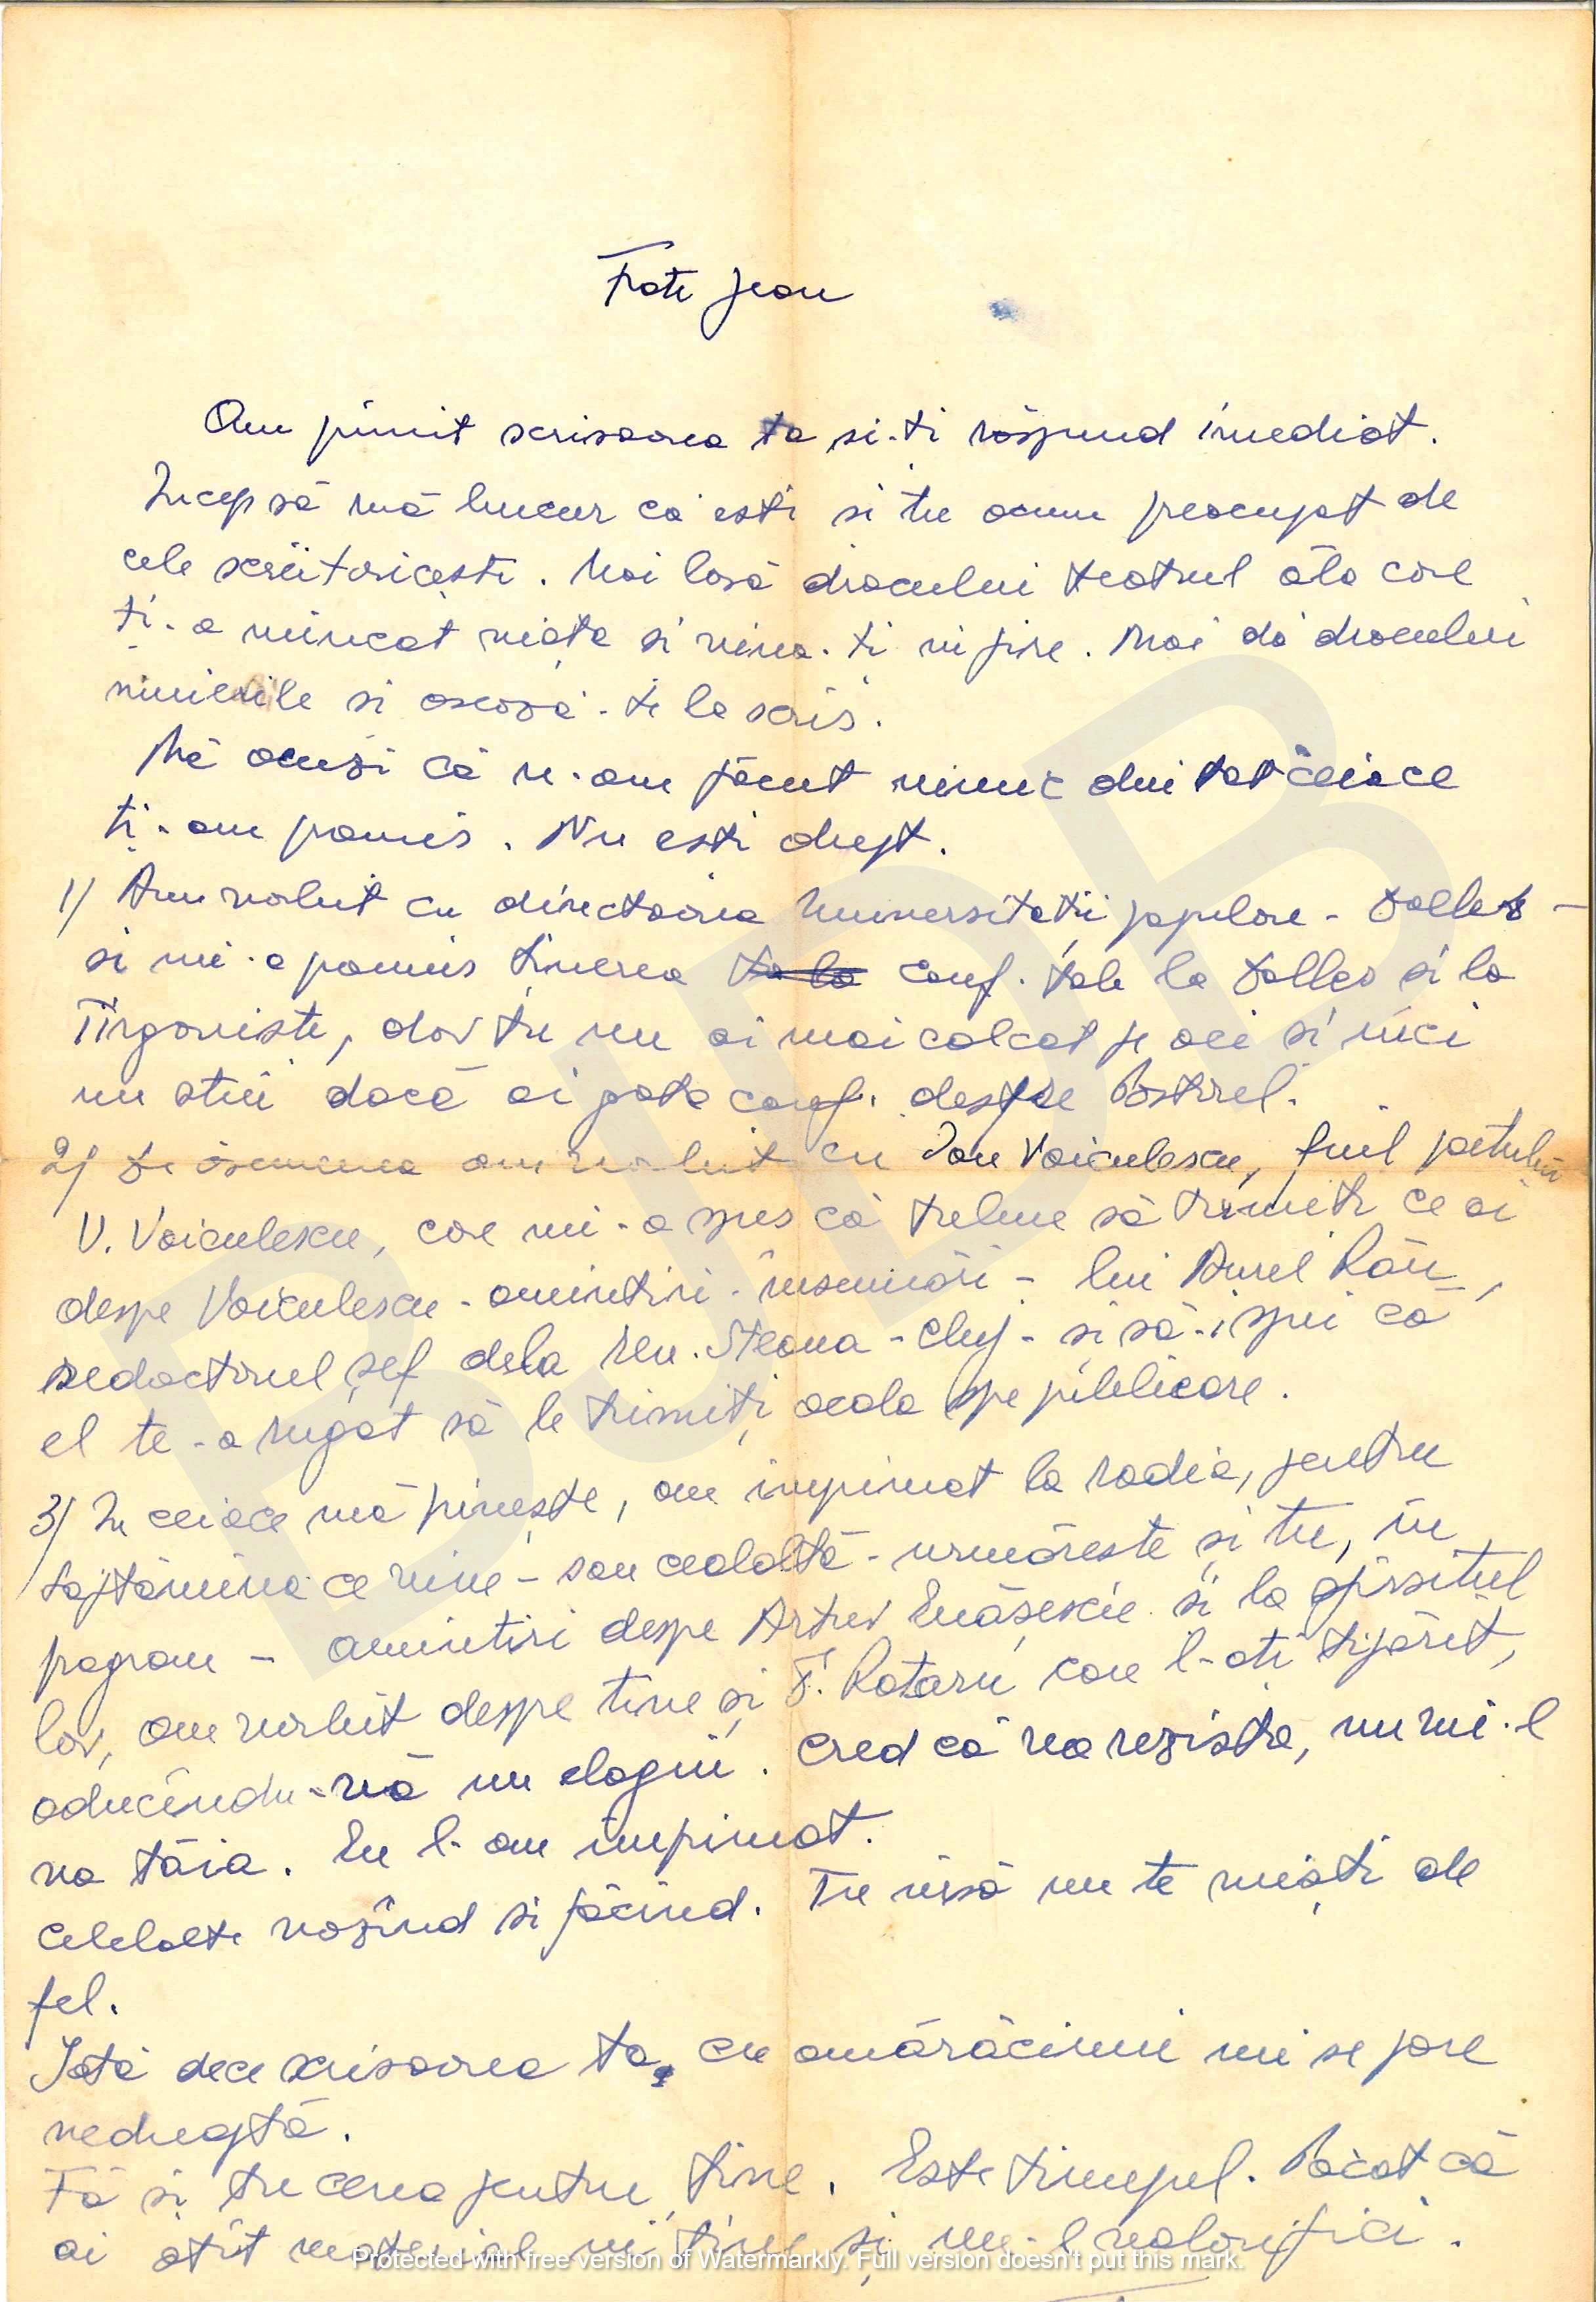 Frate Jean
Am primit scrisoarea ta si-ti răspund imediat.
Incep să mă bucur că esti si tu acum preocupat de
cele scriitoricesti. Mai lasă dracului teatrul ăla care
ti-a mincat viata si vina-ti in fire. Mai dă dracului
nimicurile si asează-te la scris.
Mă acuzi că n-am făcut nimic din tot ceiace
ți-am promis. Nu esti drept.
1) Am vorbit cu directoarea Universitatii populare - Dalles -
si mi-a promis tinerea conf. tale la Dalles si la
Tîrgoviste, dar tu nu ai mai calcat pe aci si nici
nu stiu dacă ai gata conf. despre Păstorel.
2) De asemenea am vorbit cu Ion Voiculescu, fiul poetului
V. Voiculescu, care mi-a spus că trebue să trimiti ce ai
despre Voiculescu - amintiri - însemnări - lui Aurel Rău,
redactorul șef dela rev. Steaua - Cluj - și să-i spui că
el te-a rugat să le trimiți acolo spre publicare.
3) In ceiace mă privește, am imprimat la radio, pentru
săptămîna ce vine - sau cealaltă - urmăreste și tu, în
program - amintiri despre Artur Enășescu și la sfîrsitul
lor, am vorbit despre tine și F. Rotaru care l-ati tipărit,
aducîndu-vă un elogiu. Cred că va rezista, nu mi-l
va tăia. Eu l-am imprimat.
Celelalte vazînd si făcînd. Tu însă nu te miști de
fel.
Iată deci scrisoarea ta, cu amărăciuni mi se pare
nedreaptă.
Fă si tu ceva pentru tine. Este timpul. Păcat că
ai atît material in tine și nu-l valorifici.
Protected with free version of Watermarkly. Full version doesn't put this mark.
BJDB